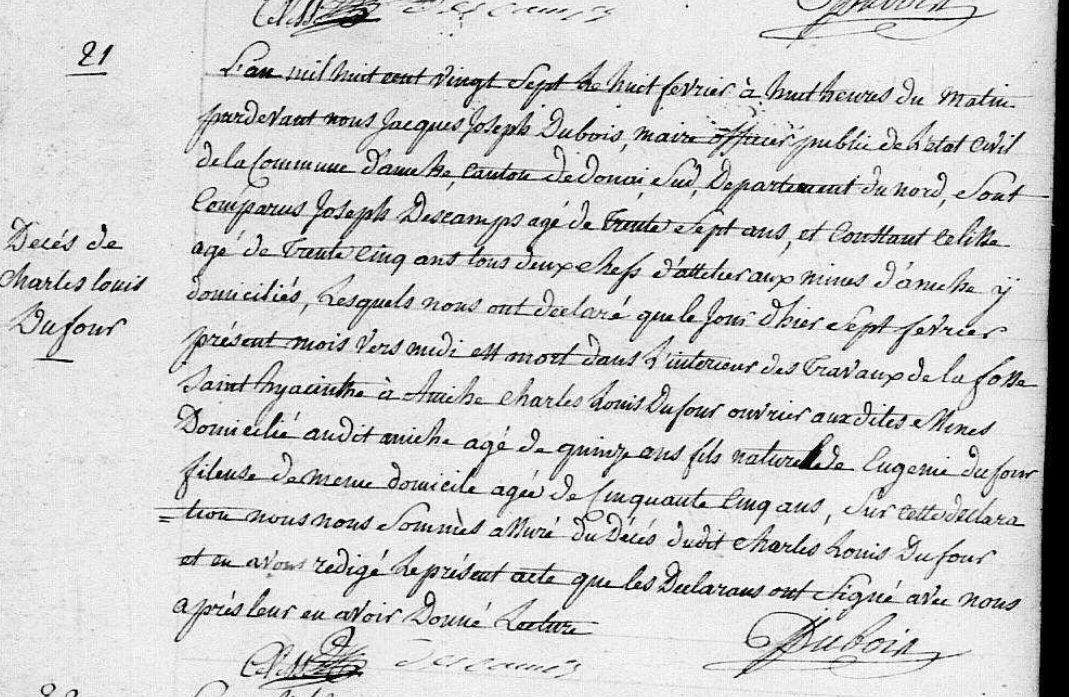 Celisse Descamps Dubois
21
L'an mil huit cent vingt sept le huit fevrier à huit heures du matin
pardevant nous Jacques Joseph Dubois, maire officier public de l'etat civil
de la Commune d'aniche, canton de douai Sud, Departement du nord, sont
Comparus Joseph Descamps agé de Trente sept ans, et Constant Celisse
agé de Trente Cinq ans tous deux chefs d'attelier aux mines d'aniche y
domiciliés, Lesquels nous ont declaré que le Jour d'hier sept fevrier
présent mois vers midi est mort dans L'interieur des Travaux de la fosse
Saint hyacinthe à Aniche Charles Louis Dufour ouvrier aux dites Mines
Domicilié audit aniche agé de quinze ans fils naturel de Eugenie dufour
fileuse de meme domicile agée de Cinquante Cinq ans, Sur cette declara
tion nous nous Sommes assuré du Décés dudit Charles Louis Dufour
et en avons redigé Le présent acte que les Declarans ont signé avec nous
aprés leur en avoir Donné Lecture
Decés de
Charles louis
Dufour
Celisse Descamps Dubois
22